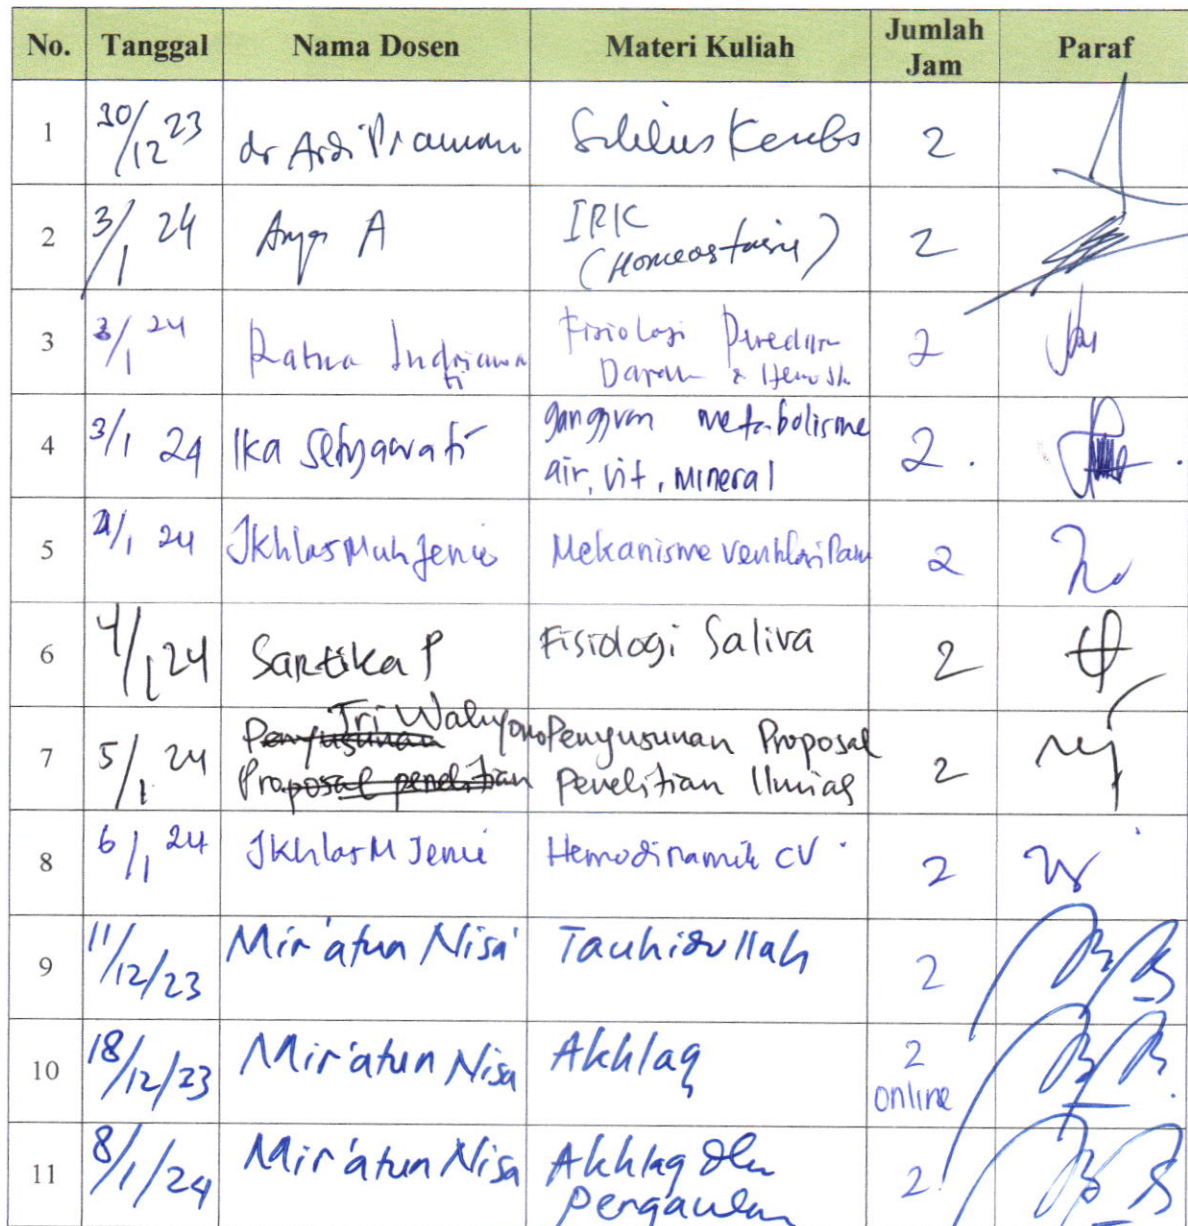 No. Tanggal Nama Dosen Materi Kuliah Jumlah Jam Paraf
1 30/12 23 dr Ardi Pramono Siklus Kerebs 2
2 3/1 24 A IRK (Homeostasis) 2
3 3/1 24 Ratna Indriawati Fisiologi Peredarn Darah & 2
4 3/1 24 Ika Setyawati gangguan metabolisme air, vit, mineral 2.
5 4/1 24 Ikhlas Muh Jenie Mekanisme ventilasi Paru 2
6 4/1 24 Sartika P Fisiologi Saliva 2
7 5/1 24 Tri Wahyono Penyusunan Proposal Penelitian Ilmiah 2
Penyusunan
Proposal penelitian
8 6/1 24 Ikhlas M Jenie Hemodinamik CV 2
9 11/12/23 Mir'atun Nisa' Tauhidullah 2
10 18/12/23 Mir'atun Nisa Akhlaq 2 online
11 8/1/24 Mir'atun Nisa Akhlaq dlm Pergaulan 2